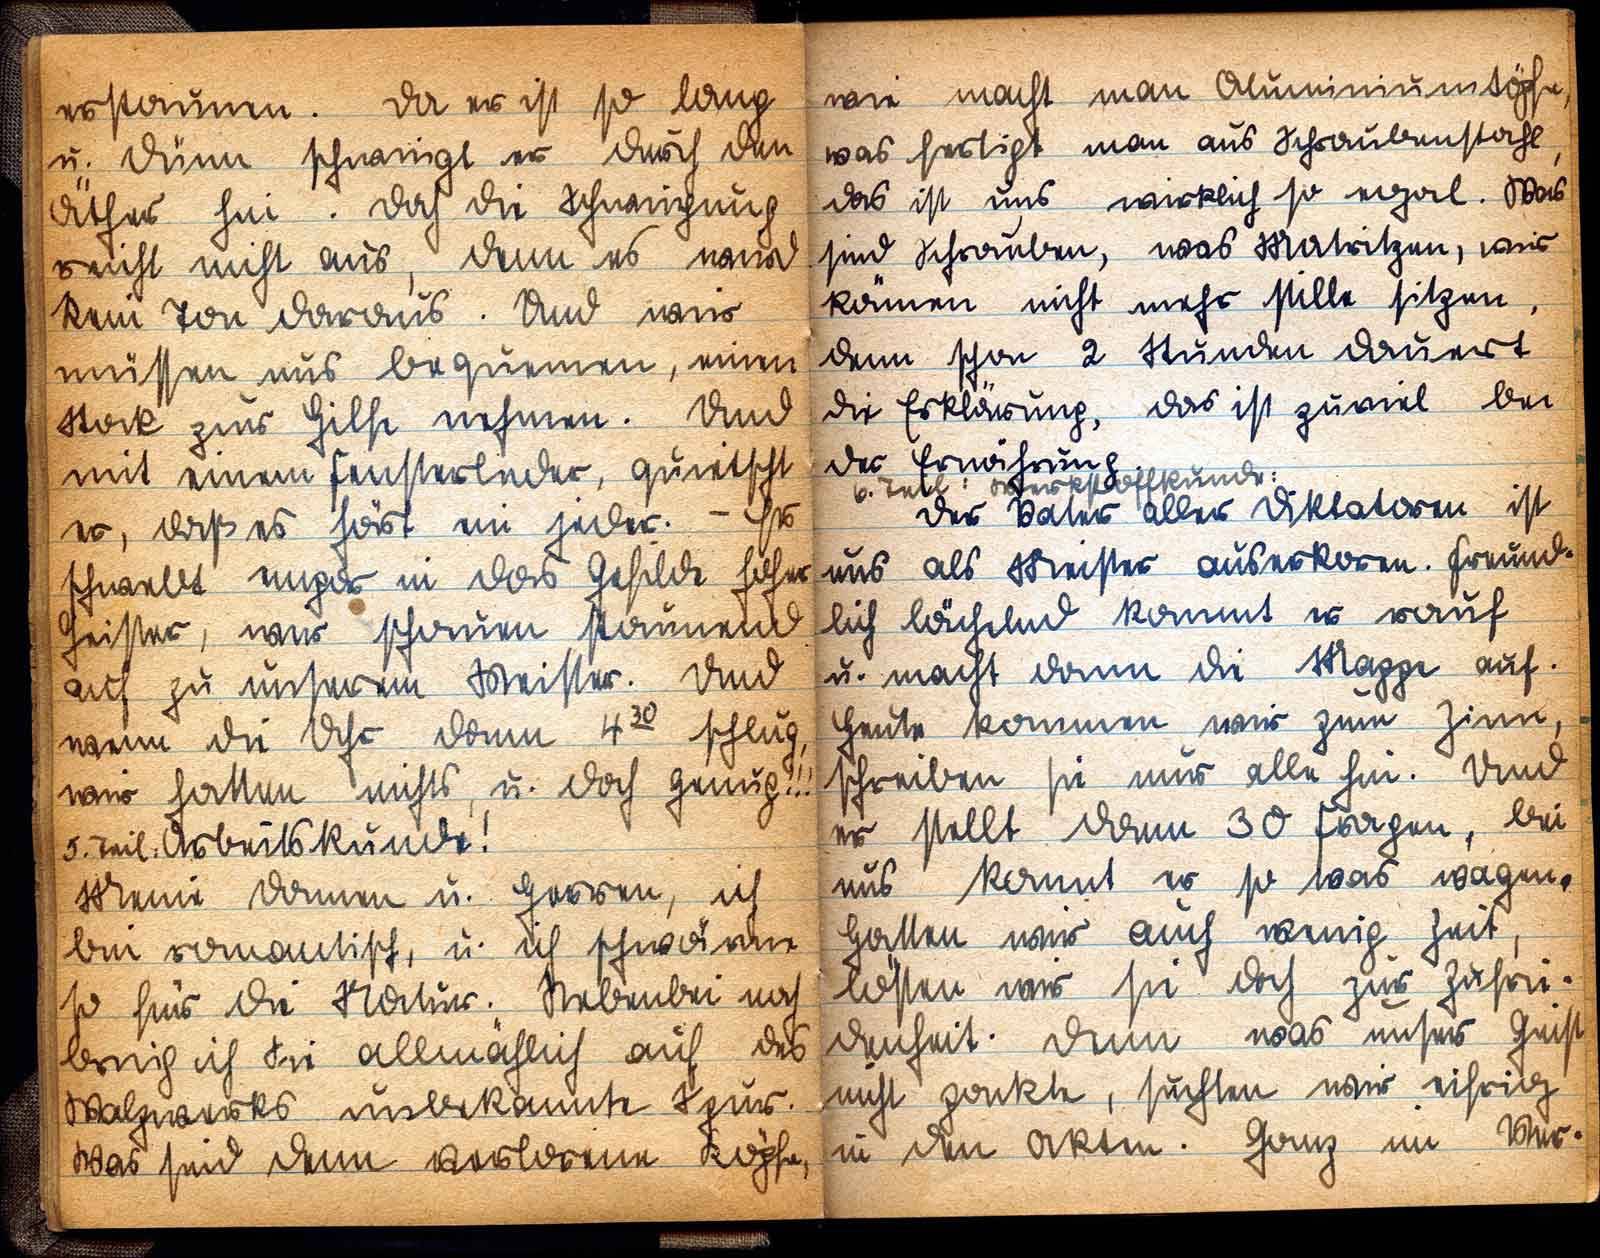 erstaunen. Da er ist so lang
u. dünn schwingt er durch den
Äther hin. Doch die Schwingung
reicht nicht aus, denn es wird
kein Ton daraus. Und wir
müssen uns bequemen, einen
Stock zur Hilfe nehmen. Und
mit einem Fensterleder, quietscht
er, daß es hört ein jeder. – Er
schwebt empor in das Gefilde hoher
Geister, wir schauen staunend
auf zu unserem Meister. Und
wenn die Uhr dann 4 30 schlug,
wir hatten nichts, u. doch genug!!!
5. Teil: Arbeitskunde!
Meine Damen u. Herren, ich
bin romantisch, u. ich schwärme
so für die Natur. Nebenbei noch
bring ich Sie allmählich auf des
Walzwerks unbekannte Spur.
Was sind denn verlorene Köpfe,
wie macht man Aluminiumtöpfe,
was fertigt man aus Schraubenstahl,
das ist uns wirklich so egal. Was
sind Schrauben, was Matritzen, wir
können nicht mehr stille sitzen,
denn schon 2 Stunden dauert
die Erklärung, das ist zuviel bei
der Ernährung.
6. Teil: Werkstoffkunde:
Der Vater aller Diktatoren ist
uns als Meister auserkoren. Freund-
lich lächelnd kommt er rauf
u. macht dann die Mappe auf.
Heute kommen wir zum Zinn,
schreiben sie nur alle hin. Und
er stellt dann 30 Fragen, bei
uns kannt er so was wagen.
Hatten wir auch wenig Zeit,
lösten wir sie doch zur Zufrie-
denheit. Denn was unser Geist
nicht packte, suchten wir eifrig
in den Akten. Ganz im Ver-